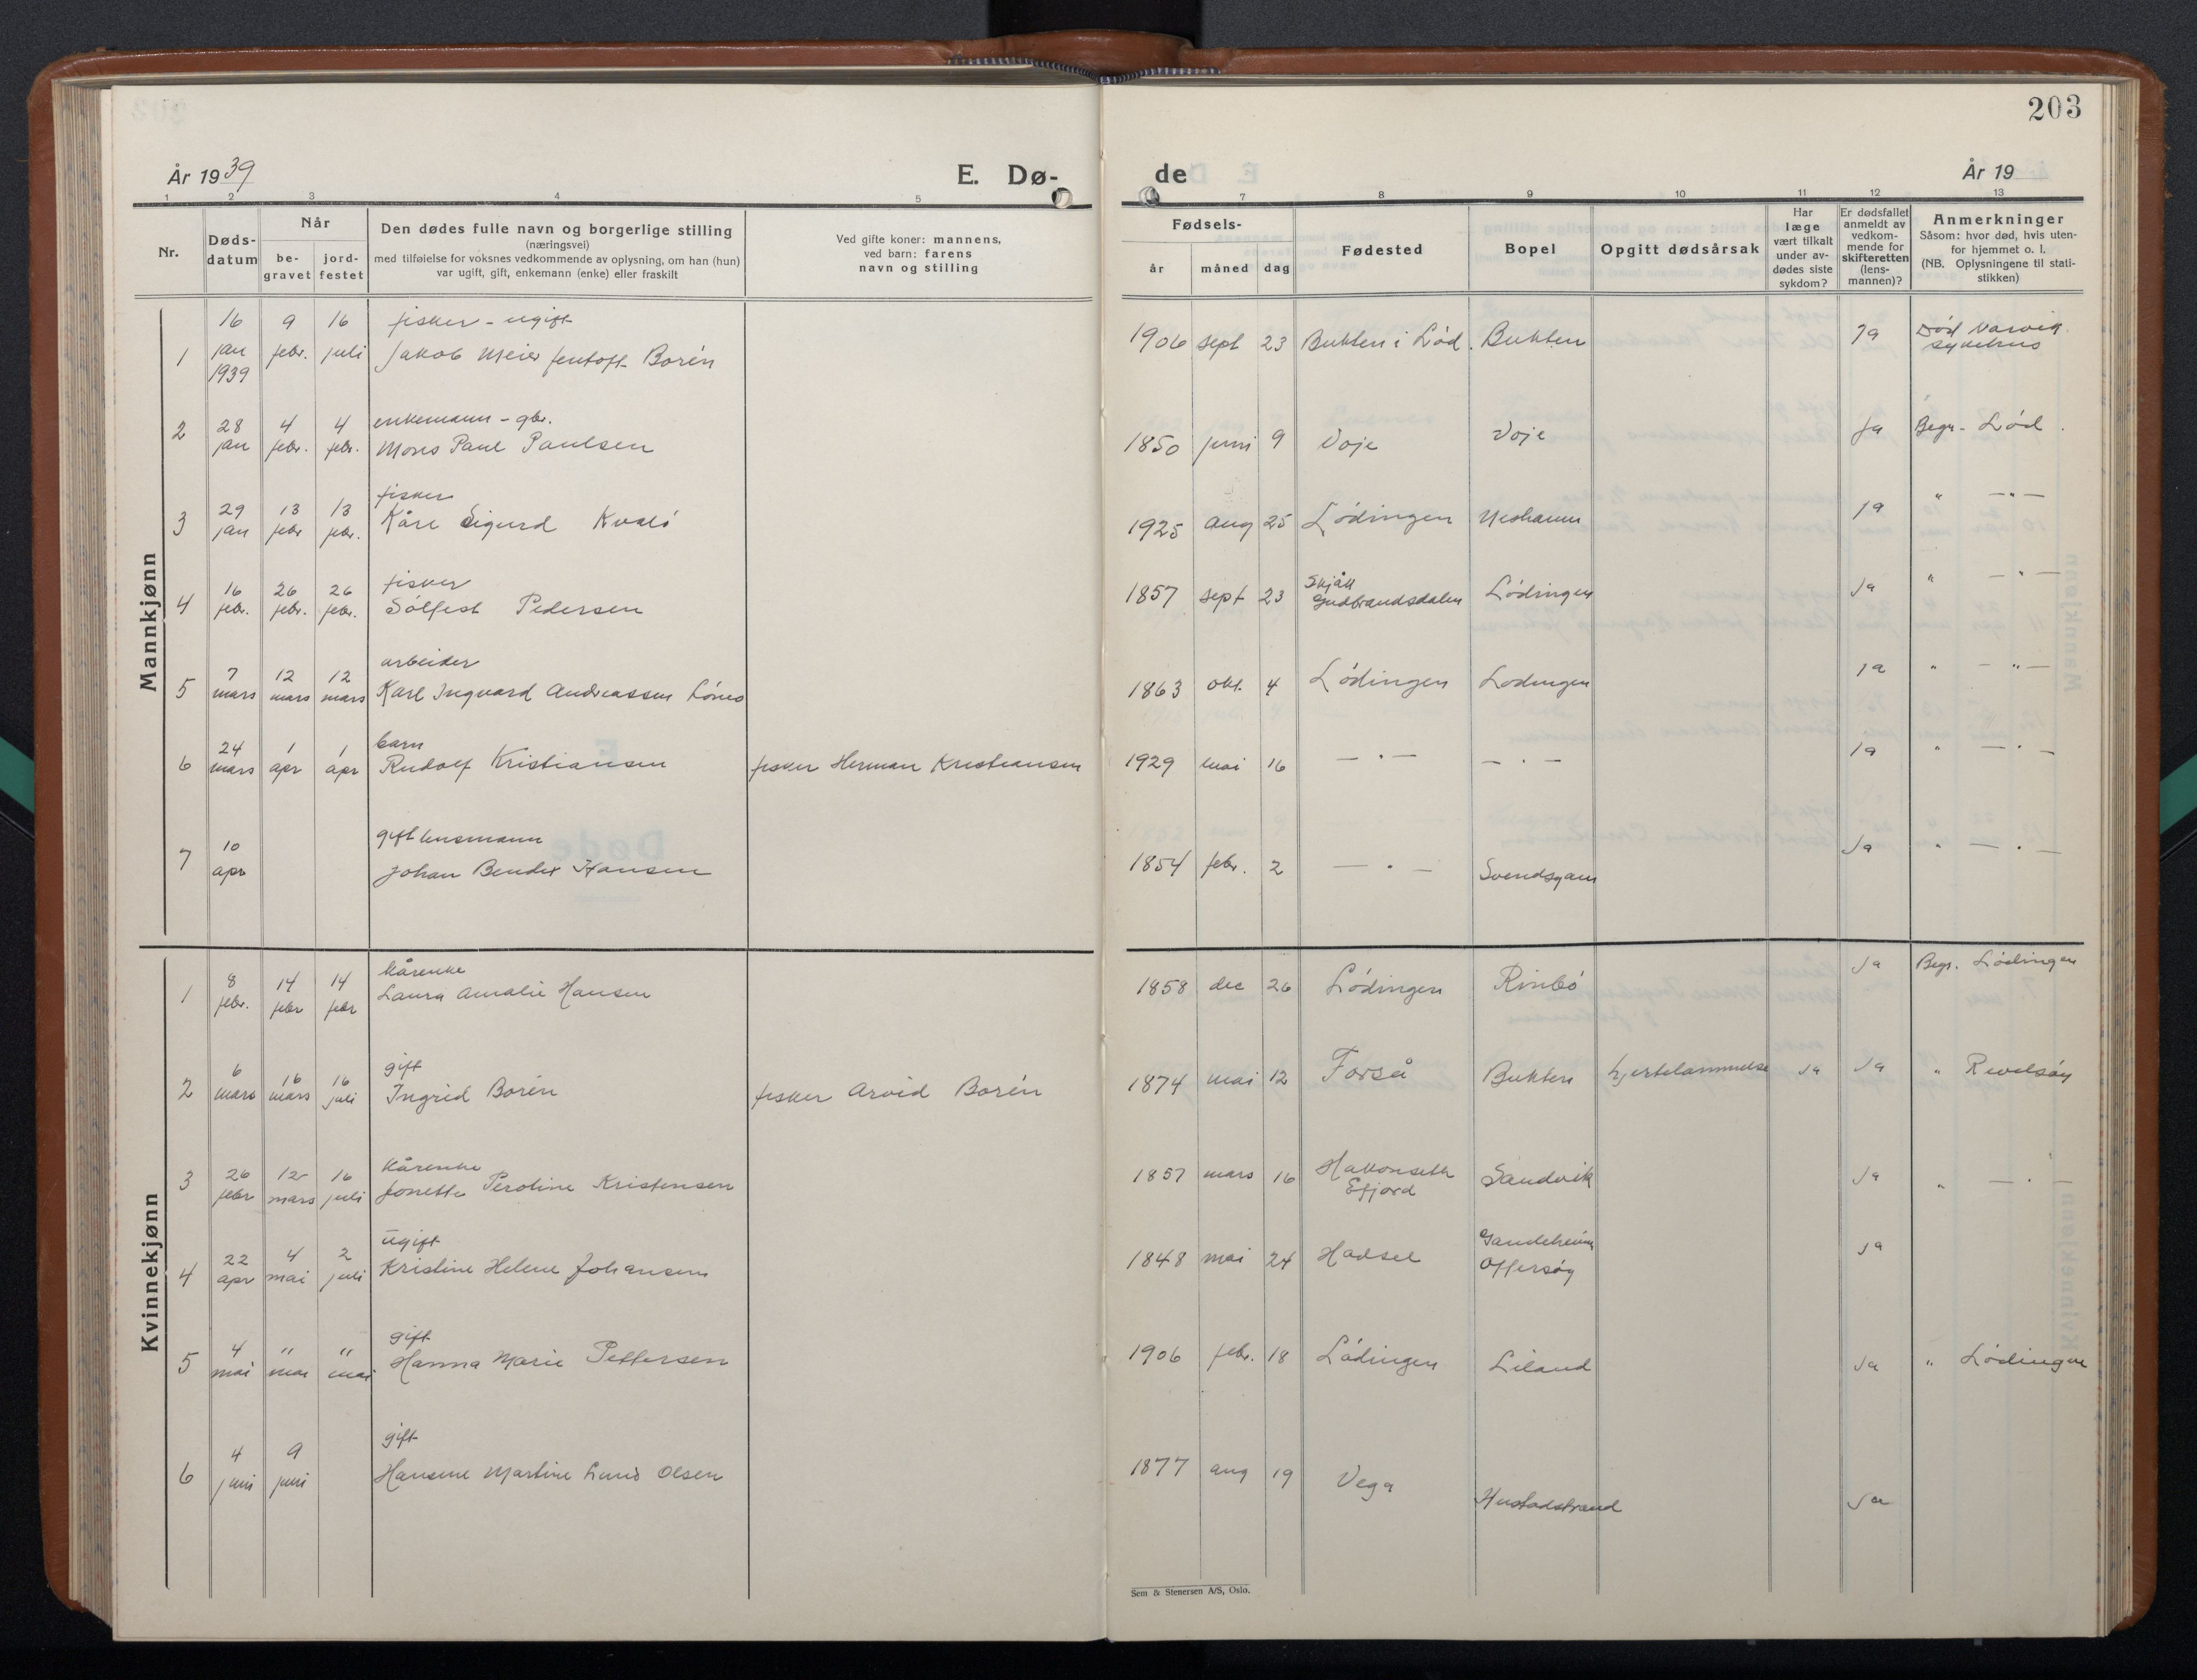 203
År 1939
E. Dø-
de
År 19
1 2 3 4 5 7 8 9 10 11 12 13
Nr.
Døds-
datum
Når
be-
gravet
jord-
festet
Den dødes fulle navn og borgerlige stilling
(næringsvei)
med tilføielse for voksnes vedkommende av oplysning, om han (hun)
var ugift, gift, enkemann (enke) eller fraskilt
Ved gifte koner: mannens,
ved barn: farens
navn og stilling
Fødsels-
år måned dag
Fødested
Bopel
Opgitt dødsårsak
Har
læge
vært tilkalt
under av-
dødes siste
sykdom?
Er dødsfallet
anmeldt av
vedkom-
mende for
skifteretten
(lens-
mannen)?
Anmerkninger
Såsom: hvor død, hvis uten-
for hjemmet o. l.
(NB. Oplysningene til stati-
stikken)
Mannkjønn
16 9 16 fisker - ugift
1 jan febr. juli Jakob Meier Jentoft Borén 1906 sept 23 Bukten i Lød. Bukten ja Død Narvik
1939 sykehus
28 4 4 enkemann - gbr.
2 jan febr. febr. Mons Paul Paulsen 1850 juni 9 Voje Voje ja Begr. Lød.
29 13 13 fisker
3 jan febr febr. Kåre Sigurd Kvalö 1925 aug 25 Lödingen Neshamn ja " — " —
16 26 26 fisker Skjåk
4 febr. febr. febr. Sölfest Pedersen 1857 sept 23 Gudbrandsdalen Lödingen Ja " — " —
7 12 12 arbeider
5 mars mars mars Karl Ingvard Andreassen Lönes 1863 okt. 4 Lödingen Lodingen ja " — " —
24 1 1 barn
6 mars apr apr Rudolf Kristiansen fisker Herman Kristiansen 1929 mai 16 — " — — " — ja " — " —
10 gift lensmann
7 apr Johan Bendix Hansen 1854 febr. 2 — " — Svendsgam Ja " — " —
Kvinnekjønn
8 14 14 kårenke
1 febr. febr febr Laura Amalie Hansen 1858 dec 26 Lödingen Rinbö Ja Begr. Lödingen
6 16 16 gift
2 mars mars juli Ingrid Borén fisker Arvid Borén 1874 mai 12 Forså Bukten hjertelammelse Ja Ja "
26 12 16 kårenke
3 febr mars juli Jonette Perotine Kristensen 1857 mars 16 Efjord Sandvik Ja " — " —
22 4 2 ugift
4 apr mai juli Kristine Helene Johansen 1848 mai 24 Hadsel Offersøy Ja
4 " " gift
5 mai mai mai Hanna Marie Pettersen 1906 febr. 18 Lödingen Liland Ja " Lödingen
4 9 gift
6 juni juni Hansine Martine Olsen 1877 aug 19 Vega Hustadstrand Ja
Sem & Stenersen A/S, Oslo.